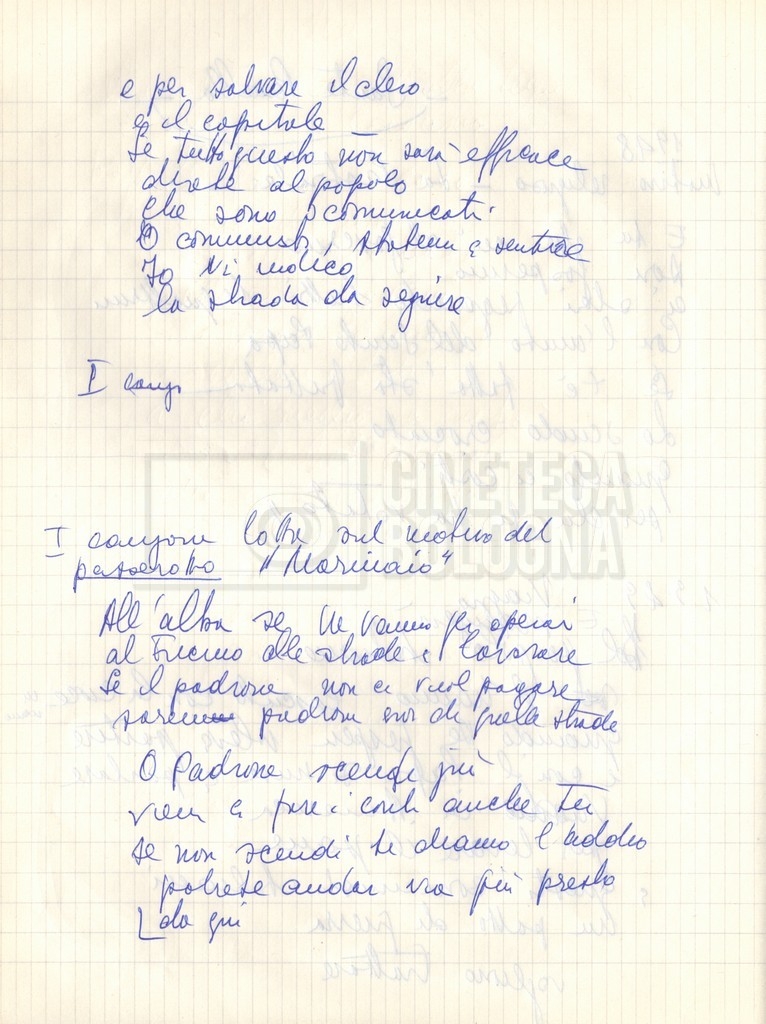 e per salvare il clero
e il capitale
Se tutto questo non sarà efficace
direte al popolo
che sono scomunicati
O comunisti, statemi a sentire
Io vi indico
la strada da seguire
I canz
CINETECA
BOLOGNA
I canzone lotta sul motivo del
passerotto "Marinaio"
All'alba se ne vanno gli operai
al Fucino alle strade a lavorare
Se il padrone non ci vuol pagare
saremo padroni noi di quelle strade
O Padrone scendi giù
vieni a fare i conti anche tu
se non scendi ti diamo l'addio
potrete andar via più presto
da qui